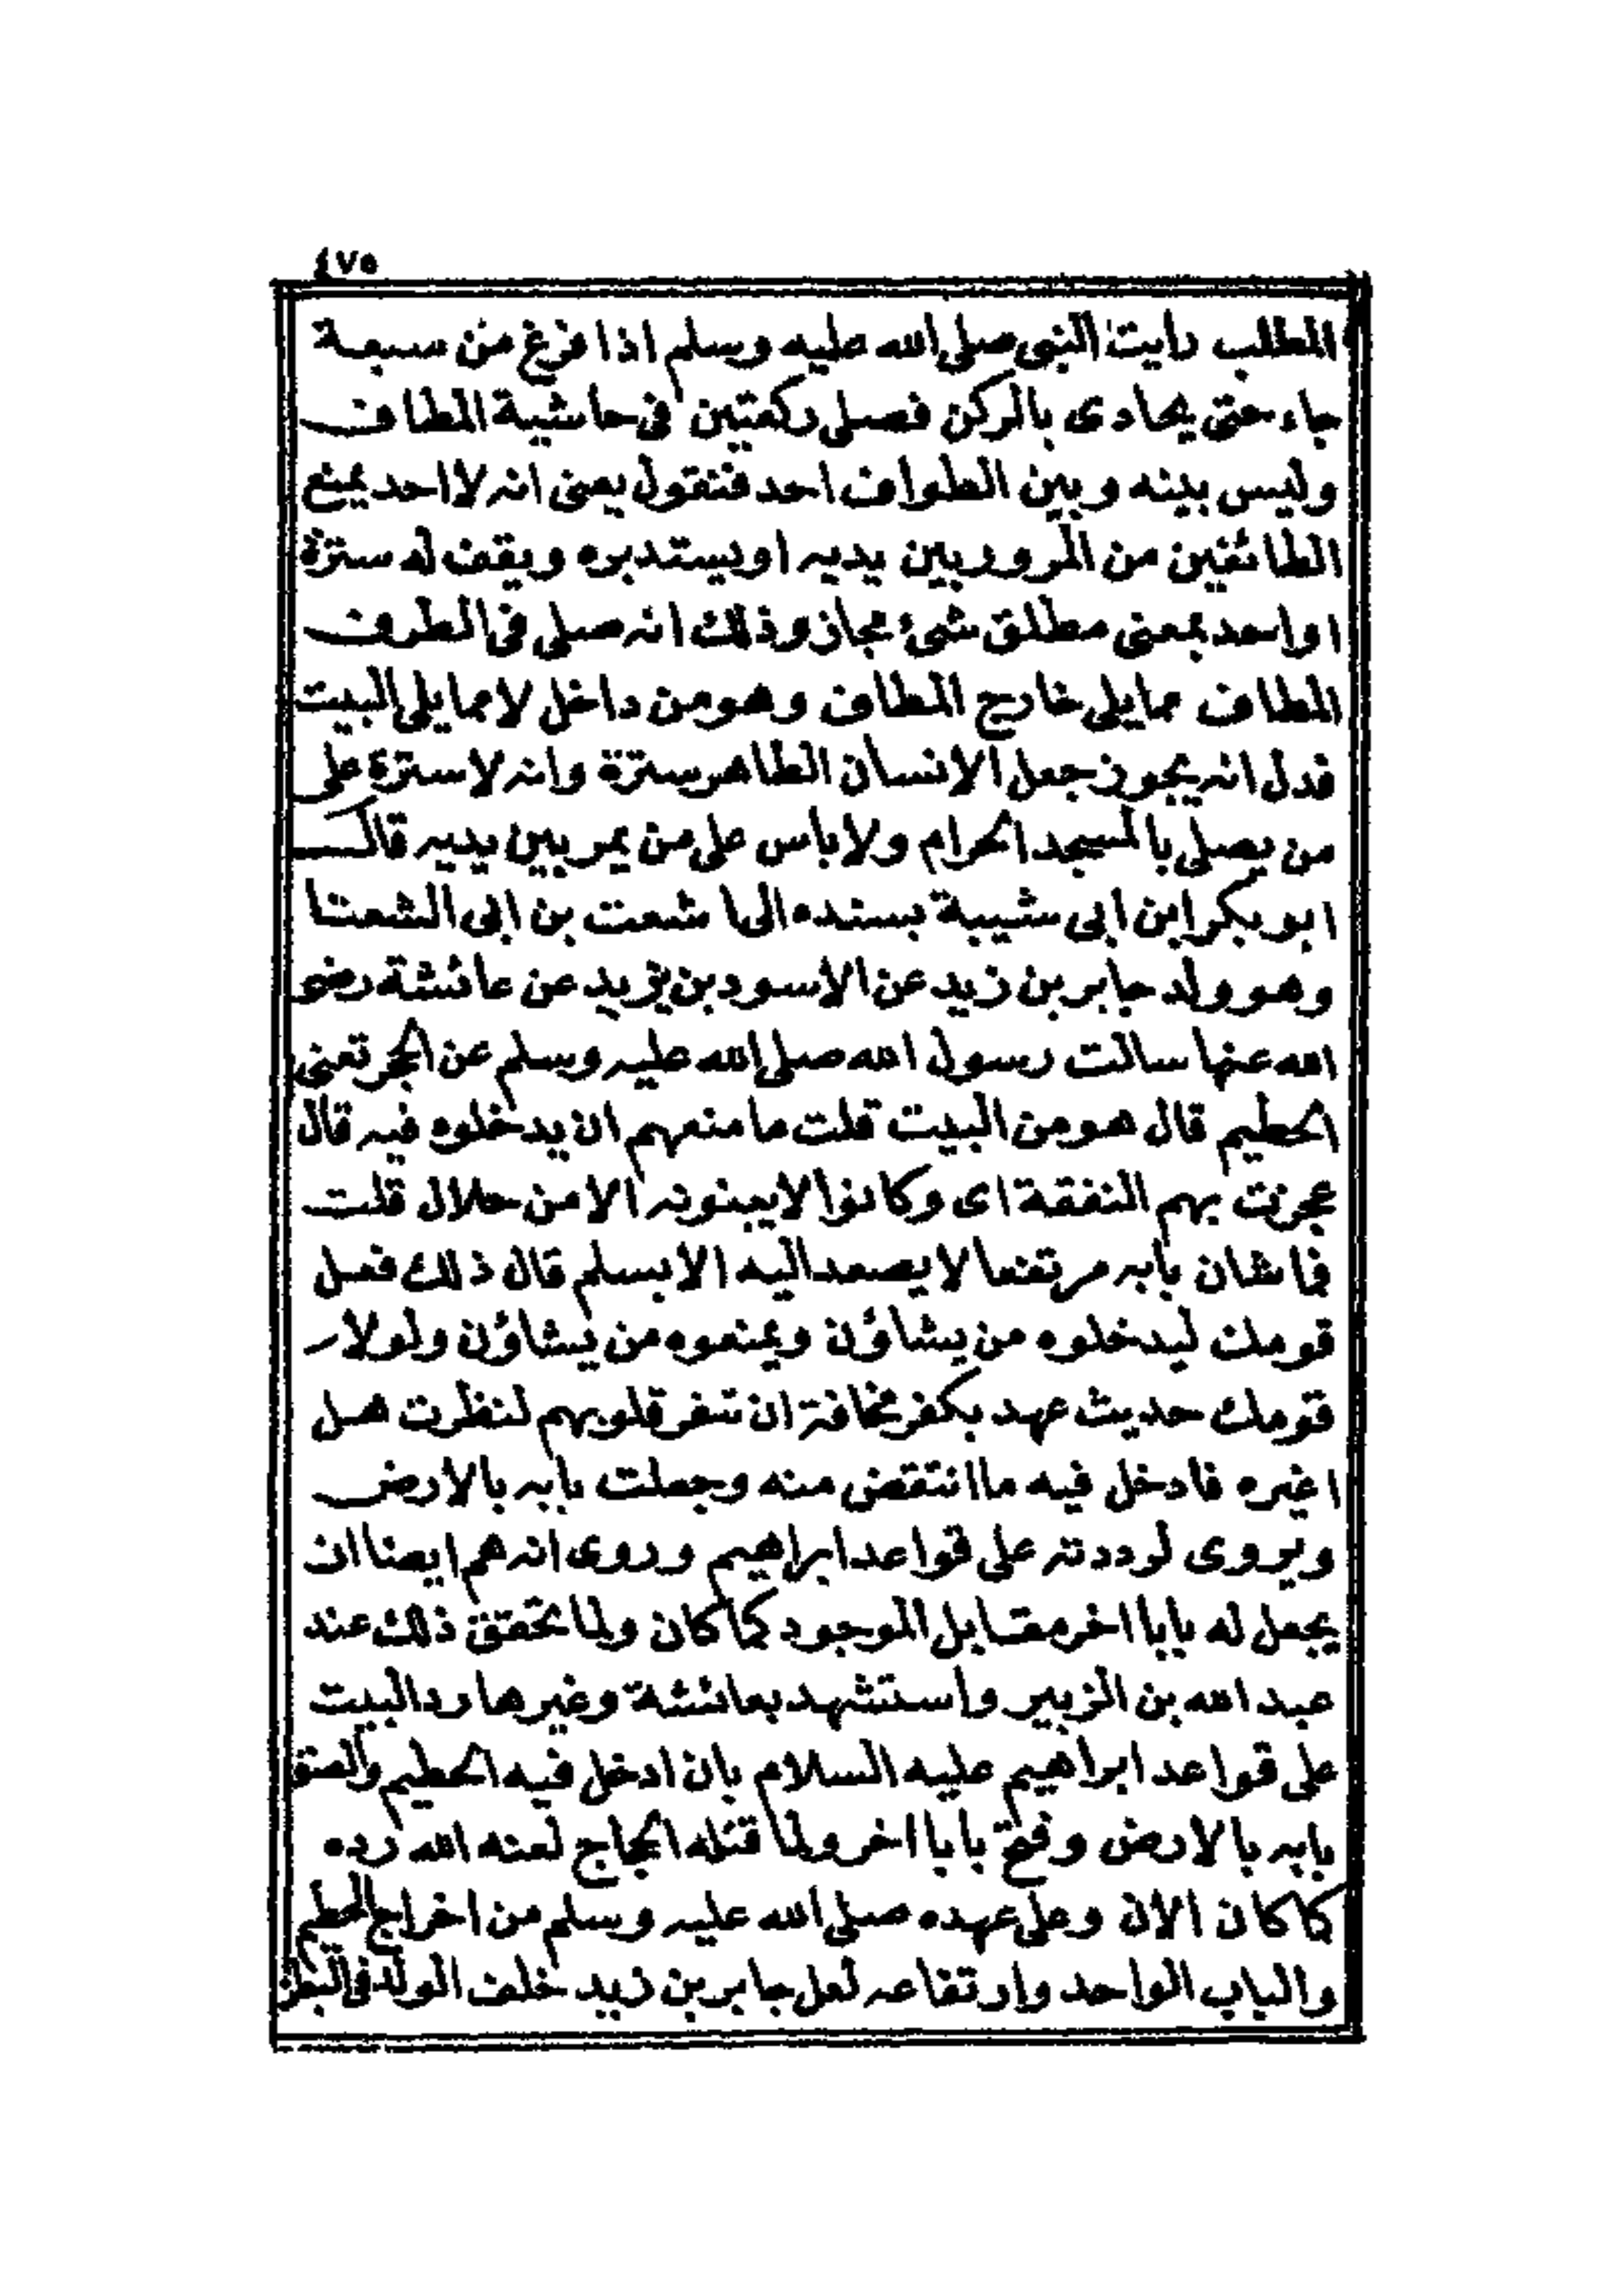 ٤٧٥
المطلب رايت النبي صلى الله عليه وسلم اذا فرغ من سبعة
جاء حتى يحاذى بالركن فصلى ركعتين فى حاشية المطاف
وليس بينه وبين الطواف احد فنقول يعنى انه لا احد يمنع
الطائفين من المرور بين يديه او يستدبره ويقف له سترة
او احد بمعنى مطلق شئ مجاز وذلك انه صلى فى الطرف
المطاف مما يلى خارج المطاف وهو من داخل لا مما يلى البيت
فدل انه يجوز جعل الانسان الطاهر سترة وانه لا سترة على
من يصلى بالمسجد الحرام ولا باس على من يمر بين يديه قال
ابو بكر ابن ابى شيبة بسنده الى اشعت بن ابى الشعتا
وهو ولد جابر بن زيد عن الاسود بن يزيد عن عائشة رضى
الله عنها سالت رسول الله صلى الله عليه وسلم عن الحجر تعنى
الحطيم قال هو من البيت قلت ما منعهم ان يدخلوه فيه قال
عجزت بهم النفقة اى وكانوا لا يبنونه الا من حلال قلت
فما شان بابه مرتفعا لا يصعد اليه الا بسلم قال ذلك فعل
قومك ليدخلوه من يشاؤن ويمنعوه من يشاؤن ولولا ر
قومك حديث عهد بكفر مخافة ان تنفر قلوبهم لنظرت هل
اغيره فادخل فيه ما انتقض منه وجعلت بابه بالارض
ويروى لوددته على قواعد ابراهيم وروى انه هم ايضا ان
يجعل له بابا اخر مقابل الموجود كما كان ولما تحقق ذلك عند
عبد الله بن الزبير واستشهد بعائشة وغيرها رد البيت
على قواعد ابراهيم عليه السلام بان ادخل فيه الحطيم والصق
بابه بالارض وفتح بابا اخر ولما قتله الحجاج لعنه الله رده
كما كان الان وعلى عهده صلى الله عليه وسلم من اخراج الحطيم
والباب الواحد وارتفاعه لعل جابر بن زيد خلف الولد فى البطن